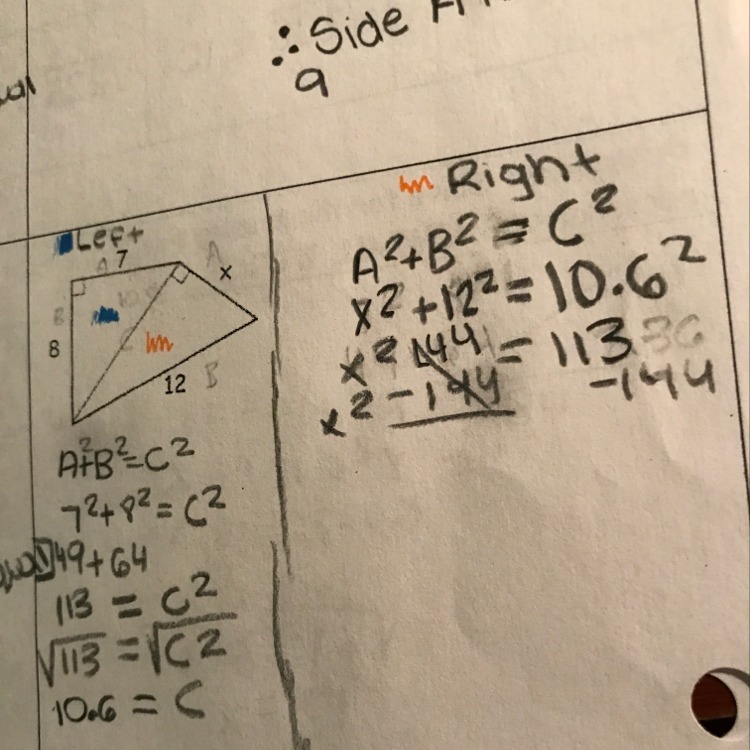 ∴ Side
9
Left
A
7
A
x
B
8
C
12
B
A²+B²=C²
7²+8²=C²
49+64
113 = C²
√113 = √C2
10.6 = C
Right
A²+B² = C²
x²+12²=10.6²
x² 144 = 113
x² -144 -144